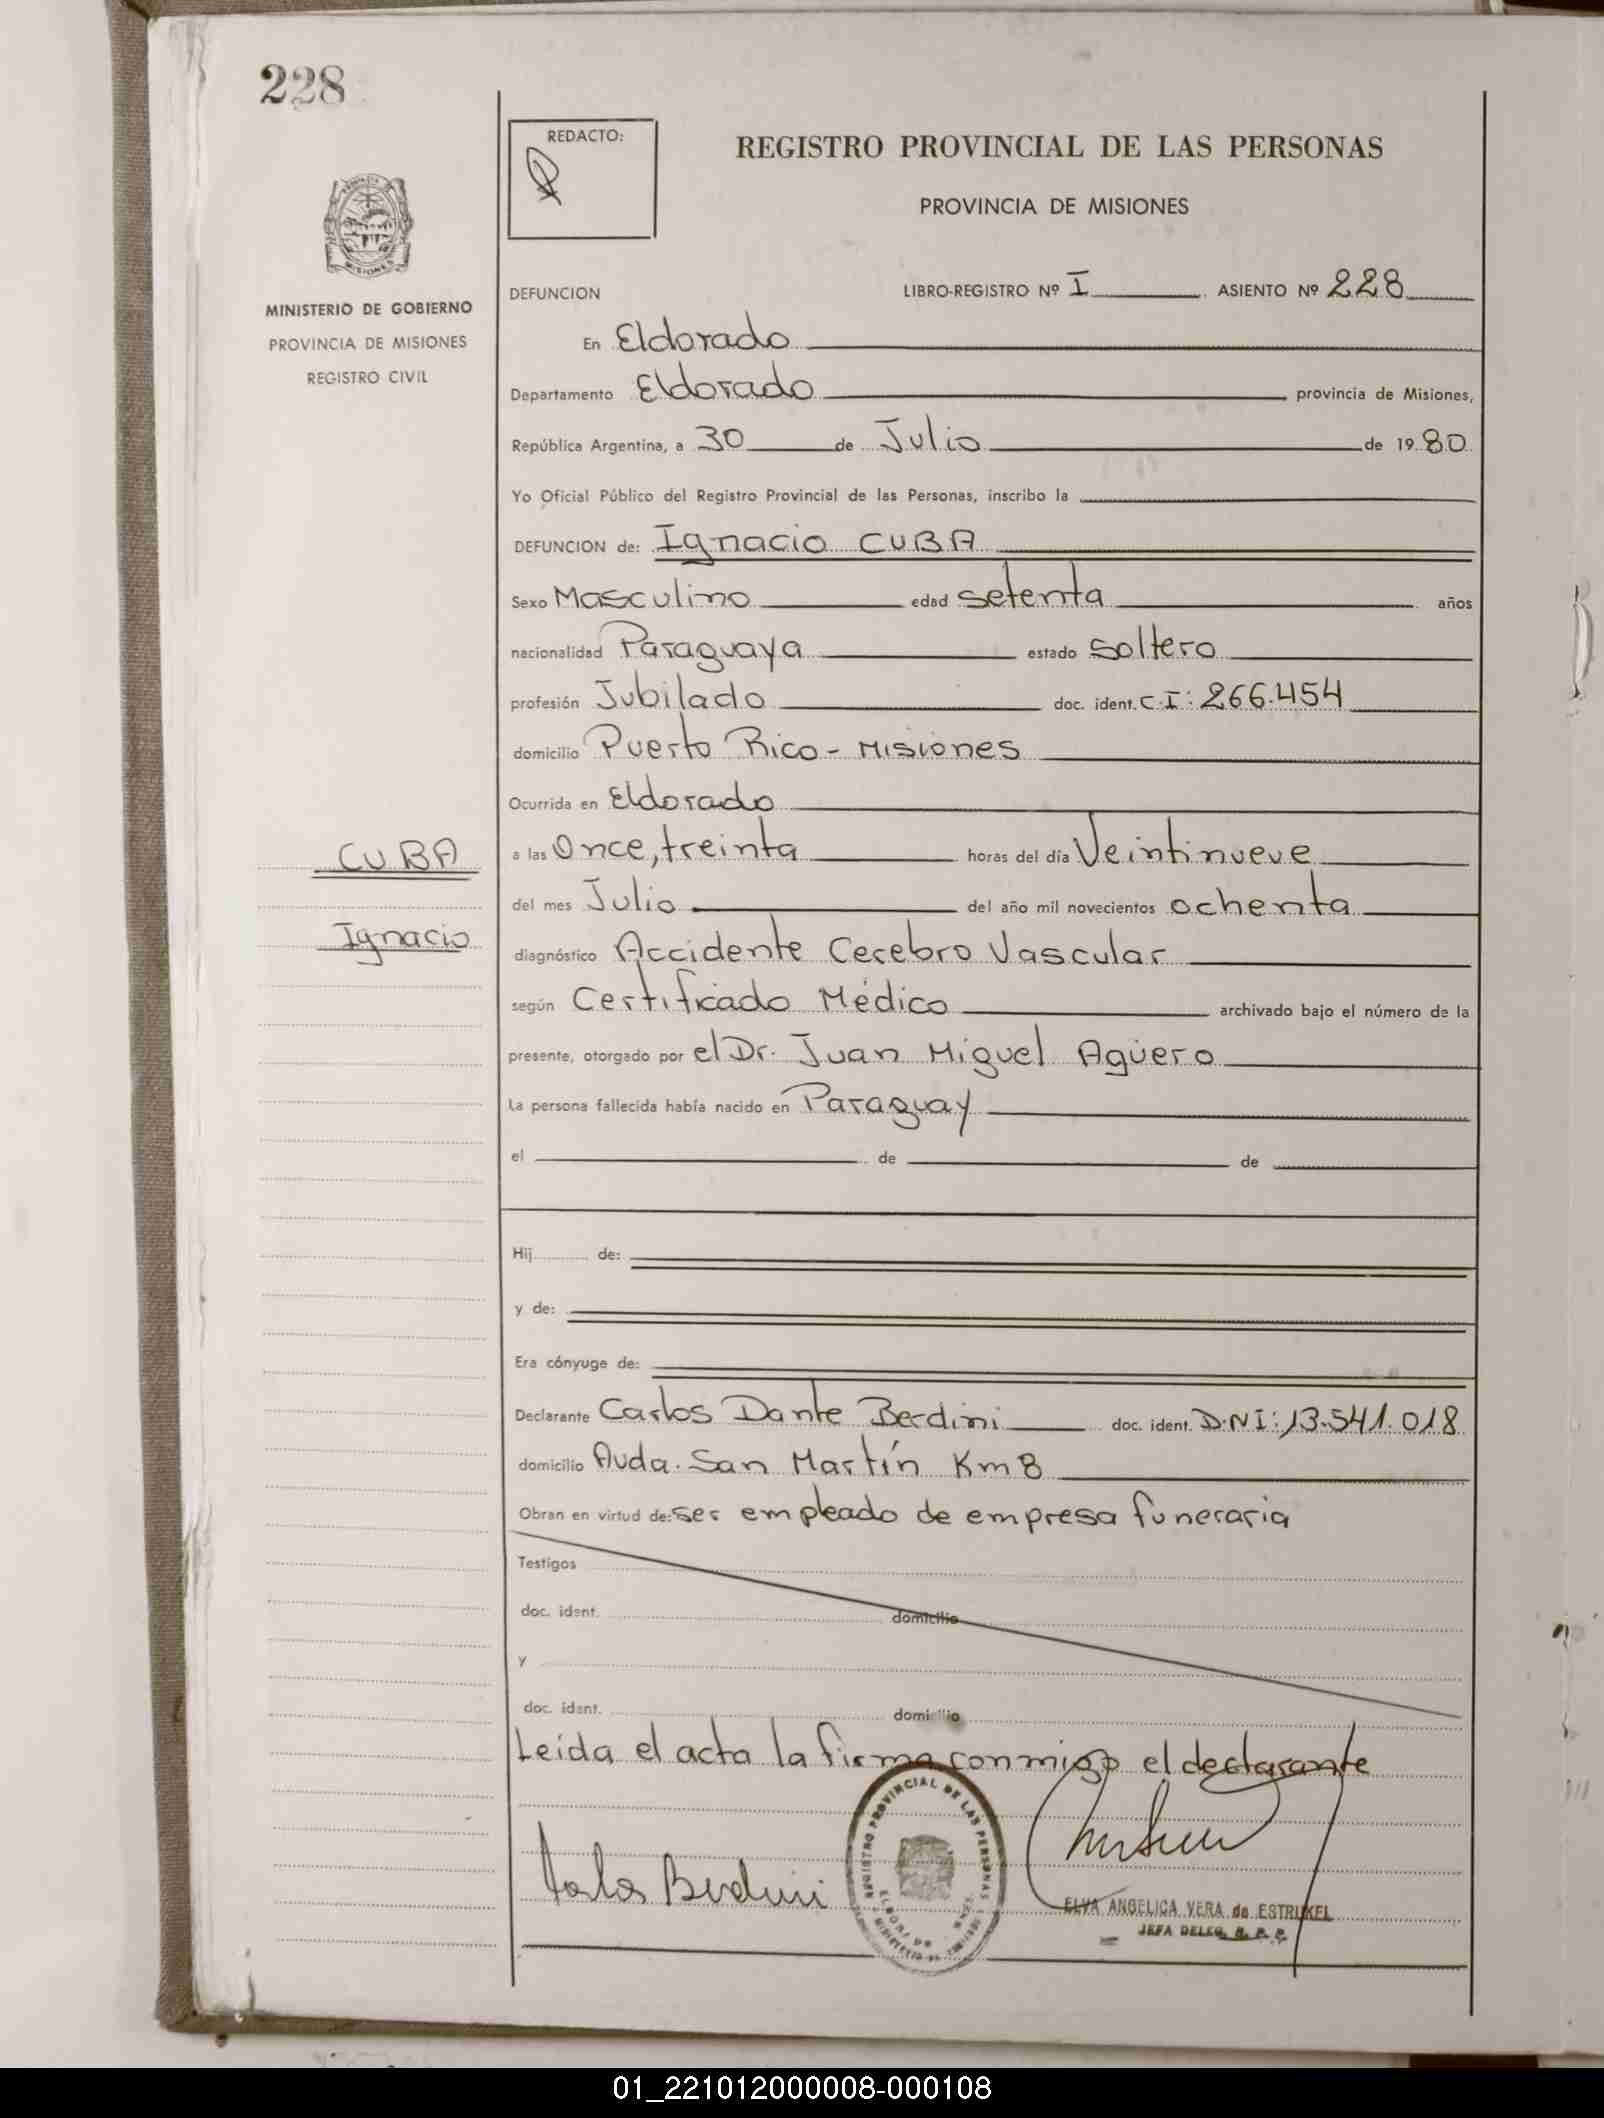 228
REDACTO:
REGISTRO PROVINCIAL DE LAS PERSONAS
PROVINCIA DE MISIONES
MISIONES
MINISTERIO DE GOBIERNO
PROVINCIA DE MISIONES
REGISTRO CIVIL
DEFUNCION LIBRO-REGISTRO Nº I ASIENTO Nº 228
En Eldorado
Departamento Eldorado provincia de Misiones,
República Argentina, a 30 de Julio de 1980
Yo Oficial Público del Registro Provincial de las Personas, inscribo la
DEFUNCION de: Ignacio CUBA
Sexo Masculino edad setenta años
nacionalidad Paraguaya estado soltero
profesión Jubilado doc. ident. C.I: 266.454
domicilio Puerto Rico - Misiones
Ocurrida en Eldorado
CUBA
a las Once, treinta horas del día Veintinueve
del mes Julio del año mil novecientos ochenta
Ignacio
diagnóstico Accidente Cerebro Vascular
según Certificado Médico archivado bajo el número de la
presente, otorgado por el Dr. Juan Miguel Agüero
La persona fallecida había nacido en Paraguay
el de de
Hij de:
y de:
Era cónyuge de:
Declarante Carlos Dante Berdini doc. ident. D.N.I: 13.541.018
domicilio Avda. San Martín Km 8
Obran en virtud de: ser empleado de empresa funeraria
Testigos
doc. ident. domicilio
y
doc. ident. domicilio
Leída el acta la firma conmigo el declarante
REGISTRO PROVINCIAL DE LAS PERSONAS
Carlos Berdini
ELVA ANGELICA VERA de ESTRUKEL
JEFA DELEG. R. P. P.
01_221012000008-000108